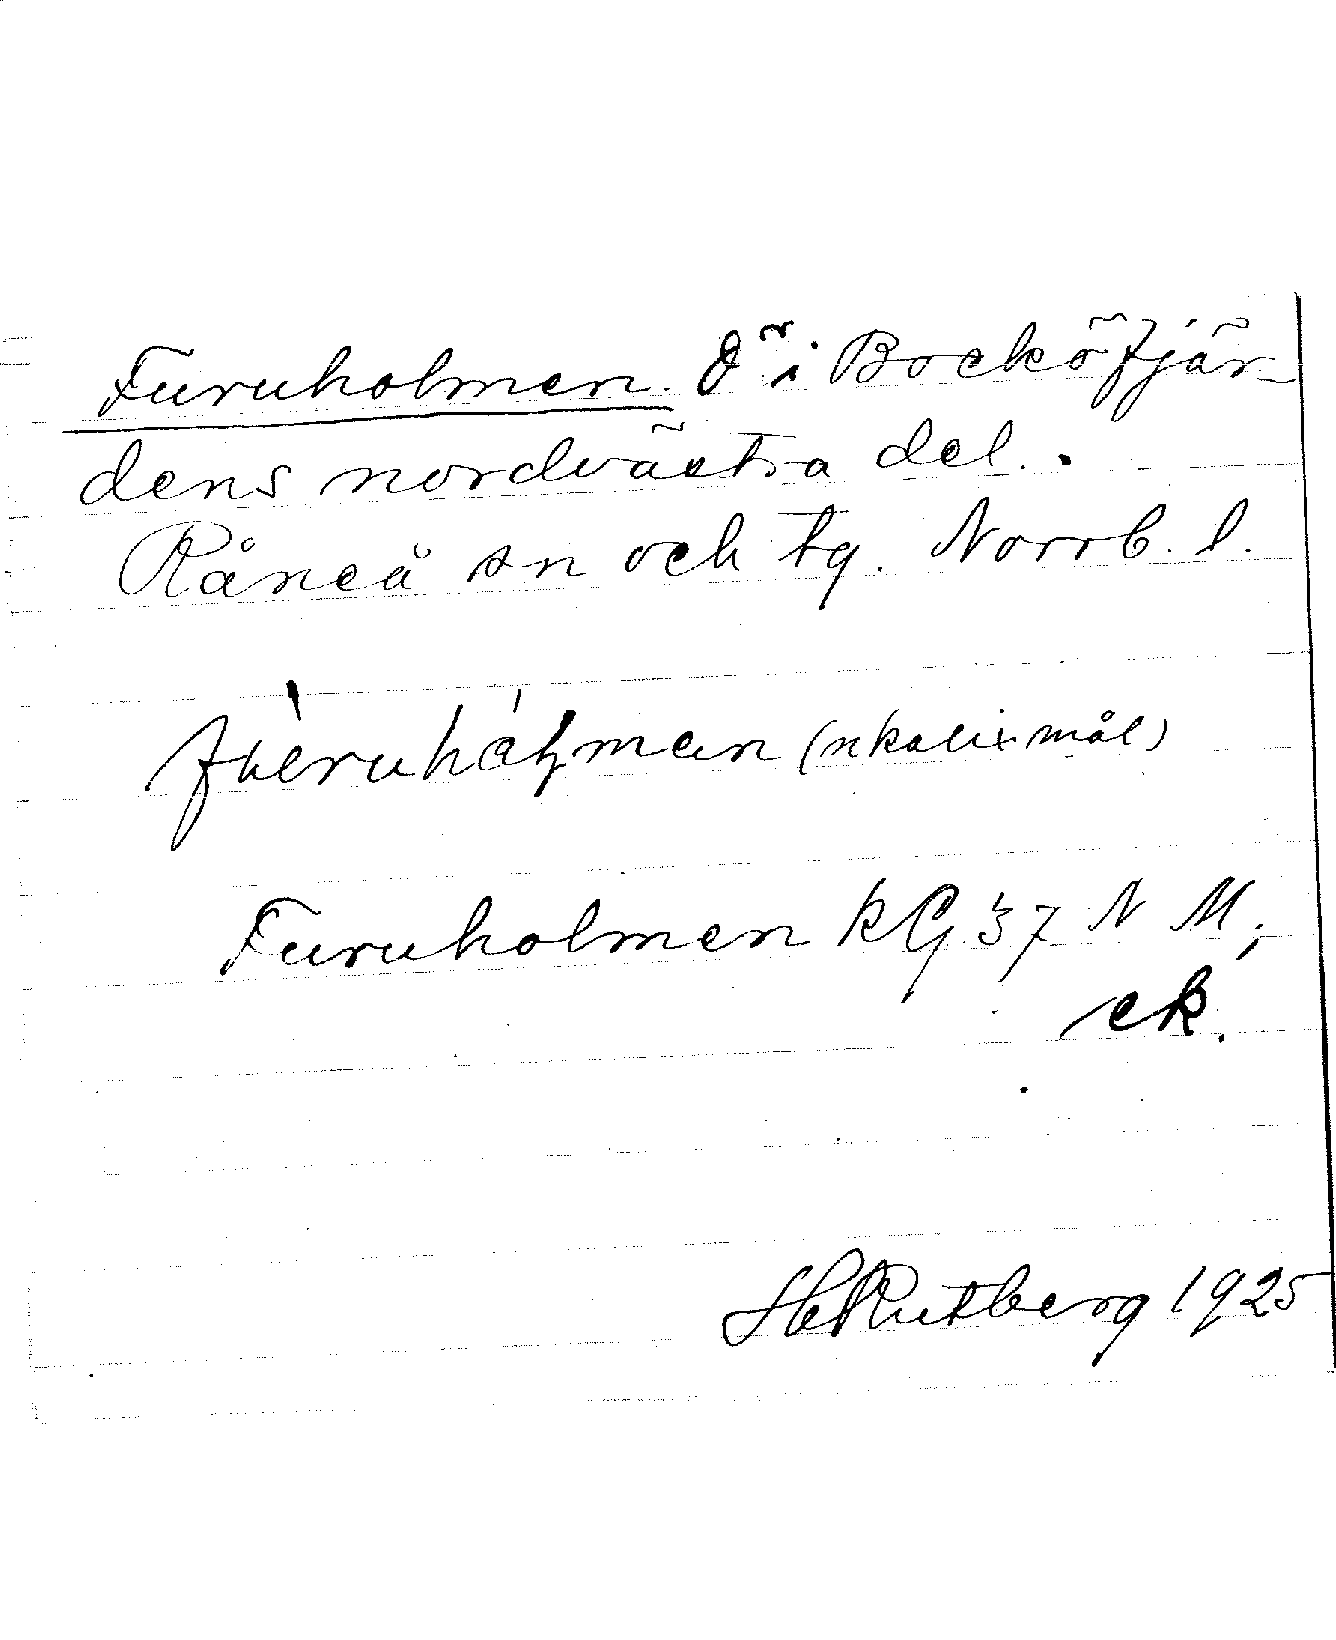 Furuholmen. Ö i Bocköfjär-
dens nordvästra del.
Råneå sn och tg. Norrb. l.
(nkalixmål)
Furuholmen kG 37 N M;
ek.
H Rutberg 1925